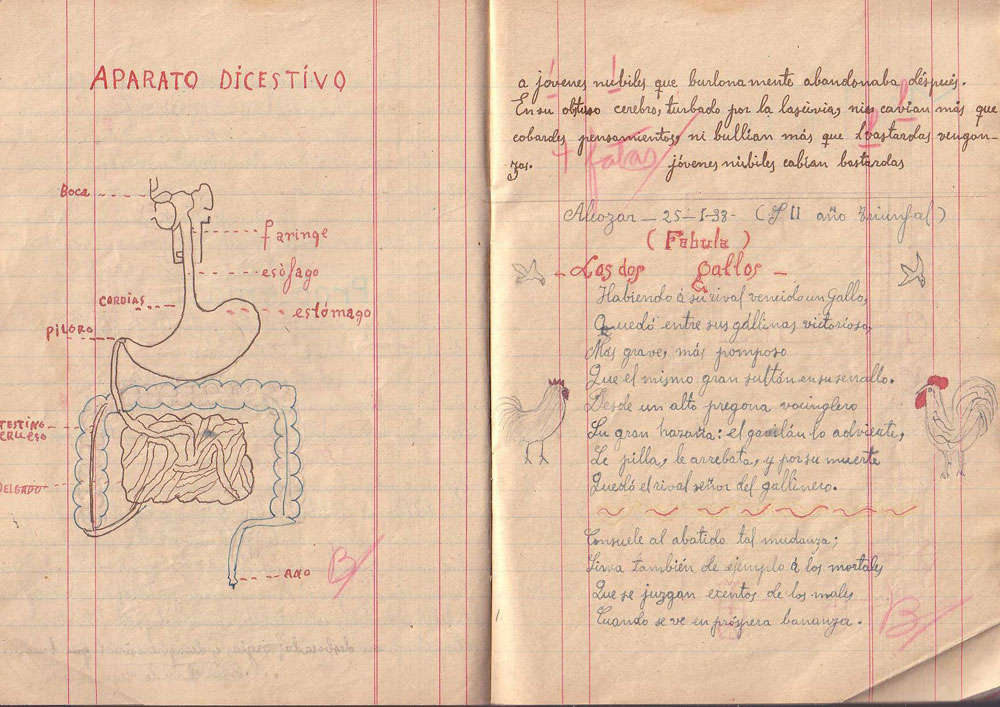 APARATO DICESTIVO
Boca
faringe
esófago
CORDIAS
estómago
PILORO
TESTINO
CRUESO
DELGADO
ANO
B
a jóvenes nubiles que burlonamente abandonaba déspués.
En su obtuso cerebro, turbado por la lascivia, nies cavian más que
cobardes pensamientos, ni bullian más que bastardas vengan-
zas.
4 fatas
jóvenes núbiles cabían bastardas
Alcozar - 25-I-38- ( II año triunfal)
(Fabula)
- Los dos gallos -
Habiendo á su rival vencido un Gallo,
Quedó entre sus gallinas victorioso,
Mas grave, más pomposo
Que el mismo gran sultán en su serrallo.
Desde un alto pregona vocinglero
Su gran hazaña: el gavilán lo advierte,
Le pilla, le arrebata, y por su muerte
Quedó el rival señor del gallinero.
Consuele al abatido tal mudanza;
Sirva también de ejemplo á los mortales
Que se juzgan exentos de los males
Cuando se ve en próspera bananza.
B